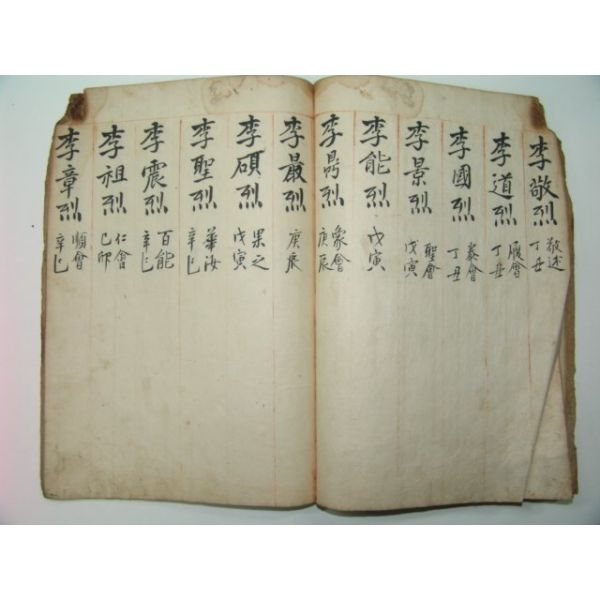 李敬烈
敬述
丁丑
李道烈
履會
丁丑
李國烈
泰會
丁丑
李景烈
聖會
戊寅
李能烈
戊寅
李昺烈
象會
庚辰
李最烈
庚辰
李碩烈
果之
戊寅
李聖烈
華汝
辛巳
李震烈
百能
辛巳
李祖烈
仁會
己卯
李章烈
順會
辛巳